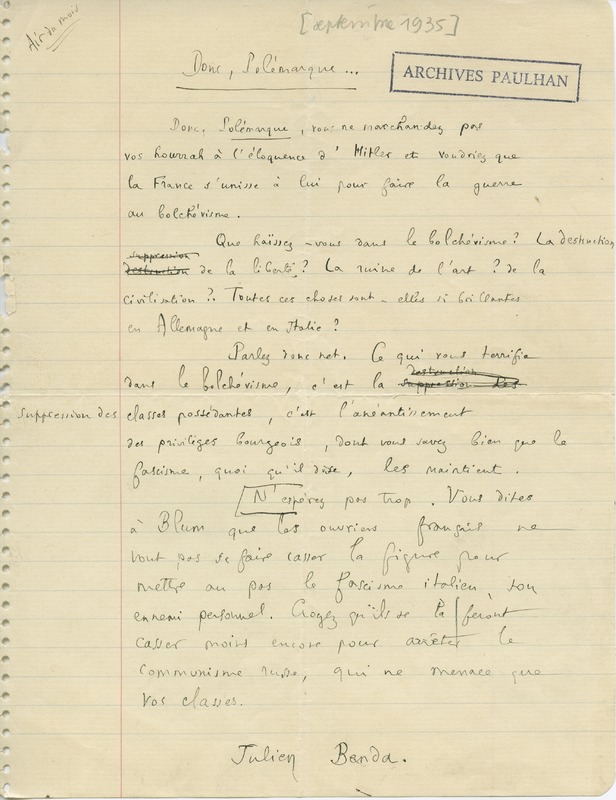 Air du mois
[septembre 1935]
ARCHIVES PAULHAN
Donc, Polémarque...
Donc, Polémarque, vous ne marchandez pas
vos hourrah à l'éloquence d'Hitler et voudriez que
la France s'unisse à lui pour faire la guerre
au bolchévisme.
Que haïssez-vous dans le bolchévisme? La destruction
suppression
destruction de la liberté? La ruine de l'art? de la
civilisation? Toutes ces choses sont-elles si brillantes
en Allemagne et en Italie?
Parlez donc net. Ce qui vous terrifie
destruction
dans le bolchévisme, c'est la suppression des
suppression des classes possédantes, c'est l'anéantissement
des privilèges bourgeois, dont vous savez bien que le
fascisme, quoi qu'il dise, les maintient.
N'espérez pas trop. Vous dites
à Blum que les ouvriers français ne
vont pas se faire casser la figure pour
mettre au pas le fascisme italien, son
ennemi personnel. Croyez qu'ils se la feront
casser moins encore pour arrêter le
communisme russe, qui ne menace que
vos classes.
Julien Benda.